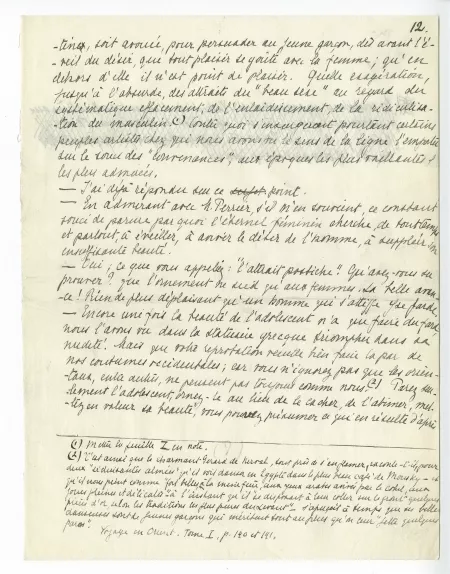 12.
-tines, soit avoué, pour persuader au jeune garçon, dès avant l'é-
-veil du désir, que tout plaisir se goûte avec la femme ; qu'en
dehors d'elle il n'est point de plaisir. Quelle exagération,
jusqu'à l'absurde, des attraits du "beau sexe" en regard du
systématique effacement, de l'enlaidissement, de la ridiculisa-
-tion du masculin (1) Contre quoi s'insurgeront pourtant certains
peuples artistes, chez qui nous avons vu le sens de la ligne l'emporter
sur le souci des "convenances", aux époques les plus vaillantes &
les plus admirées.
— J'ai déjà répondu sur ce point.
— En admirant avec M. Perrier, s'il m'en souvient, ce constant
souci de parure par quoi l'éternel féminin cherche, de tout temps
et partout, à éveiller, à aviver le désir de l'homme, à suppléer une
insuffisante beauté.
— Oui ; ce que vous appelez : "l'attrait postiche". Qu'avez-vous su
prouver ? que l'ornement ne sied qu'aux femmes. La belle avan-
-ce ! Rien de plus déplaisant qu'un homme qui s'attiffe & se farde.
— Encore une fois la beauté de l'adolescent n'a que faire du fard ;
nous l'avons vu dans la statuaire grecque triompher dans sa
nudité. Mais que votre réprobation veuille bien faire la part de
nos coutumes occidentales ; car vous n'ignorez pas que les orien-
-taux, entre autres, ne pensent pas toujours comme nous. (2) Parez seu-
-lement l'adolescent, ornez-le au lieu de le cacher, de l'abîmer, met-
-tez en valeur sa beauté, vous pourrez présumer ce qui en résulte d'après
(1) Mettre le feuillet I en note.
(2) "C'est ainsi que le charmant Gérard de Nerval, tout près de s'enflammer, raconte-t-il, pour
deux "séduisantes almées" qu'il voit danser en Égypte dans le plus beau café du Mousky —
qu'il nous peint comme "fort belles, à la mine fière, aux yeux arabes avivés par le cohel, aux
joues pleines et délicates" à l'instant qu'il se disposait à leur coller sur le front "quelques
pièces d'or selon les traditions les plus pures du Levant" — s'aperçoit à temps que ses belles
danseuses sont de jeunes garçons qui méritent tout au plus qu'on leur "jette quelques
paras".
Voyage en Orient. Tome I, p. 140 et 141.